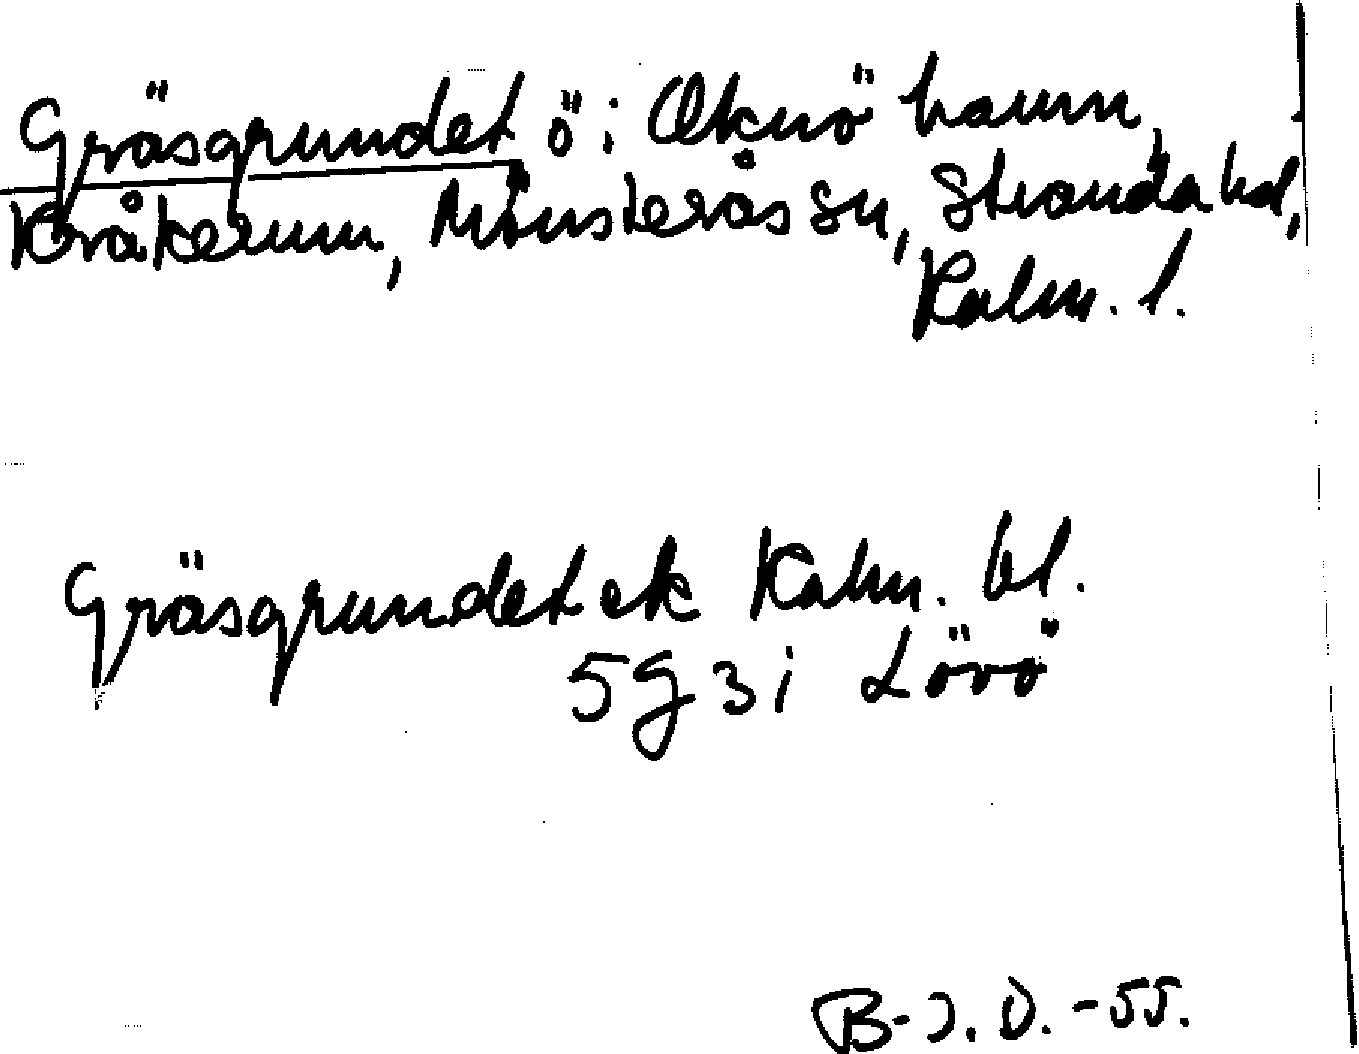 Gräsgrundet ö i Oknö hamn,
Kråkerum, Mönsterås sn, Stranda hd,
Kalm. l.
Gräsgrundet ek Kalm. bl.
5G 3i Lövö
B-J.O. -55.